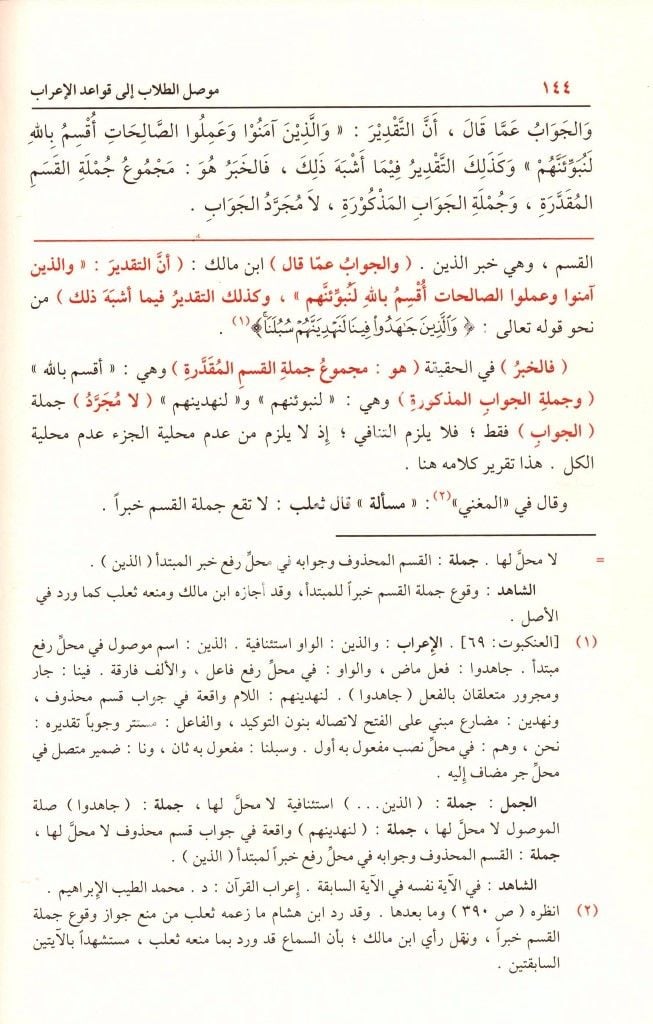 ١٤٤ موصل الطلاب إلى قواعد الإعراب
وَالجَوَابُ عَمَّا قَالَ ، أَنَّ التَّقْدِيْرَ : « وَالَّذِيْنَ آمَنُوْا وَعَمِلُوا الصَّالِحَاتِ أُقْسِمُ بِاللهِ
لَنُبَوِّئَنَّهُمْ » وَكَذَلِكَ التَّقْدِيْرُ فِيْمَا أَشْبَهَ ذَلِكَ ، فَالخَبَرُ هُوَ : مَجْمُوعُ جُمْلَةِ القَسَمِ
المُقَدَّرَةِ ، وَجُمْلَةِ الجَوَابِ المَذْكُوْرَةِ ، لاَ مُجَرَّدُ الجَوَابِ .
القسم ، وهي خبر الذين . ( والجوابُ عمّا قال ) ابن مالك : ( أنَّ التقديرَ : « والذين
آمنوا وعملوا الصالحات أُقْسِمُ باللهِ لَنُبوِّئنَّهم » ، وكذلك التقديرُ فيما أشبَهَ ذلك ) من
نحو قوله تعالى : ﴿ وَالَّذِينَ جَاهَدُوا فِينَا لَنَهْدِيَنَّهُمْ سُبُلَنَا ﴾(١) .
( فالخبرُ ) في الحقيقة ( هو : مجموعُ جملةِ القسمِ المُقَدَّرةِ ) وهي : « أقسم بالله »
( وجملةِ الجوابِ المذكورةِ ) وهي : « لنبوئنهم » و« لنهدينهم » ( لا مُجَرَّدُ ) جملة
( الجوابِ ) فقط ؛ فلا يلزم التنافي ؛ إذ لا يلزم من عدم محلية الجزء عدم محلية
الكل . هذا تقرير كلامه هنا .
وقال في «المغني»(٢): « مسألة » قال ثعلب : لا تقع جملة القسم خبراً .
= لا محلَّ لها . جملة : القسم المحذوف وجوابه في محلِّ رفع خبر المبتدأ ( الذين ) .
الشاهد : وقوع جملة القسم خبراً للمبتدأ، وقد أجازه ابن مالك ومنعه ثعلب كما ورد في
الأصل .
(١) [العنكبوت: ٦٩] . الإعراب : والذين : الواو استئنافية . الذين : اسم موصول في محلِّ رفع
مبتدأ . جاهدوا : فعل ماض ، والواو : في محلِّ رفع فاعل ، والألف فارقة . فينا : جار
ومجرور متعلقان بالفعل ( جاهدوا ) . لنهدينهم : اللام واقعة في جواب قسم محذوف ،
ونهدين : مضارع مبني على الفتح لاتصاله بنون التوكيد ، والفاعل : مستتر وجوباً تقديره :
نحن ، وهم : في محلِّ نصب مفعول به أول . وسبلنا : مفعول به ثان ، ونا : ضمير متصل في
محلِّ جر مضاف إليه .
الجمل : جملة : ( الذين... ) استئنافية لا محلَّ لها ، جملة : ( جاهدوا ) صلة
الموصول لا محلَّ لها ، جملة : ( لنهدينهم ) واقعة في جواب قسم محذوف لا محلَّ لها ،
جملة : القسم المحذوف وجوابه في محلِّ رفع خبراً لمبتدأ ( الذين ) .
الشاهد : في الآية نفسه في الآية السابقة . إعراب القرآن : د . محمد الطيب الإبراهيم .
(٢) انظره ( ص ٣٩٠ ) وما بعدها . وقد رد ابن هشام ما زعمه ثعلب من منع جواز وقوع جملة
القسم خبراً ، ونقل رأي ابن مالك ؛ بأن السماع قد ورد بما منعه ثعلب ، مستشهداً بالآيتين
السابقتين .